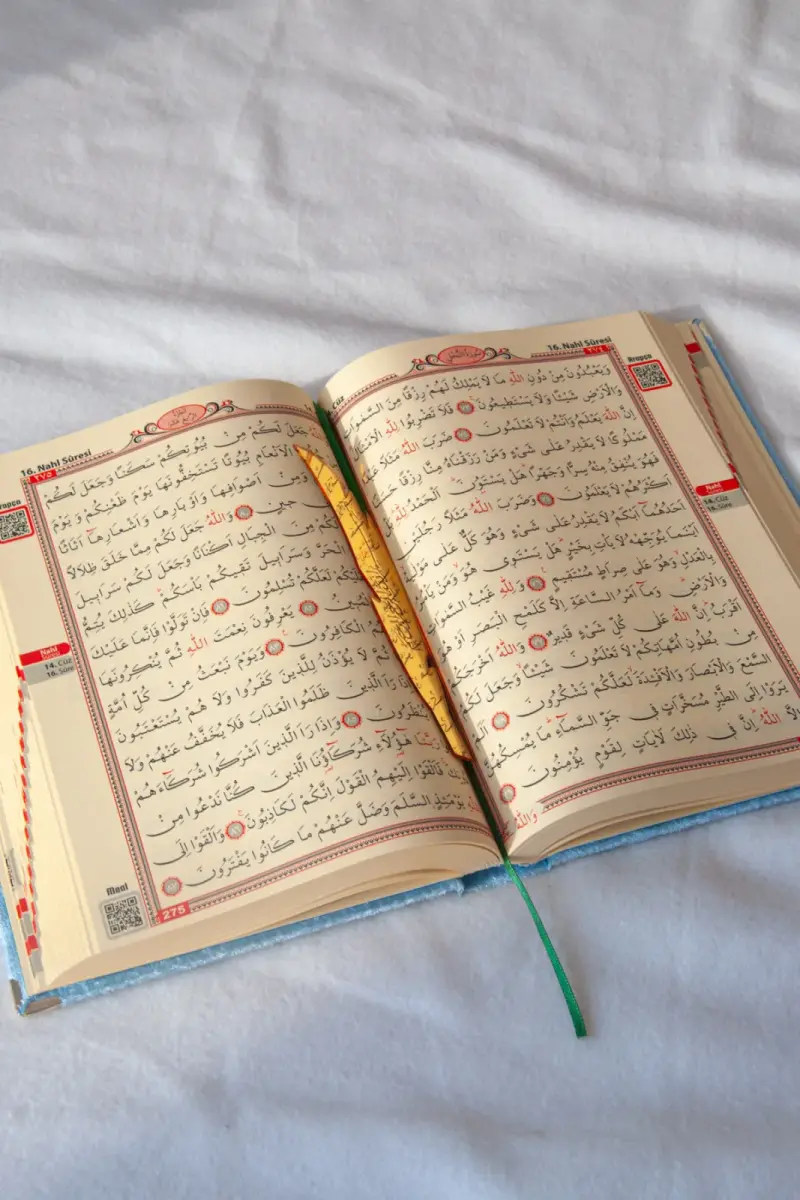 16. Nahl Sûresi
٢٧٤
سورة النحل
Cüz
وَيَعْبُدُونَ مِنْ دُونِ اللّٰهِ مَا لَا يَمْلِكُ لَهُمْ رِزْقًا مِنَ السَّمٰوَاتِ
وَالْاَرْضِ شَيْـًٔا وَلَا يَسْتَطِيعُونَ فَلَا تَضْرِبُوا لِلّٰهِ الْاَمْثَالَ
اِنَّ اللّٰهَ يَعْلَمُ وَاَنْتُمْ لَا تَعْلَمُونَ ضَرَبَ اللّٰهُ مَثَلًا عَبْدًا
مَمْلُوكًا لَا يَقْدِرُ عَلٰى شَيْءٍ وَمَنْ رَزَقْنَاهُ مِنَّا رِزْقًا حَسَنًا
فَهُوَ يُنْفِقُ مِنْهُ سِرًّا وَجَهْرًا هَلْ يَسْتَوُونَ اَلْحَمْدُ لِلّٰهِ بَلْ
اَكْثَرُهُمْ لَا يَعْلَمُونَ وَضَرَبَ اللّٰهُ مَثَلًا رَجُلَيْنِ
اَحَدُهُمَا اَبْكَمُ لَا يَقْدِرُ عَلٰى شَيْءٍ وَهُوَ كَلٌّ عَلٰى مَوْلٰيهُ
اَيْنَمَا يُوَجِّهْهُ لَا يَاْتِ بِخَيْرٍ هَلْ يَسْتَوِي هُوَ وَمَنْ يَاْمُرُ
بِالْعَدْلِ وَهُوَ عَلٰى صِرَاطٍ مُسْتَقِيمٍ وَلِلّٰهِ غَيْبُ السَّمٰوَاتِ
وَالْاَرْضِ وَمَا اَمْرُ السَّاعَةِ اِلَّا كَلَمْحِ الْبَصَرِ اَوْ هُوَ
اَقْرَبُ اِنَّ اللّٰهَ عَلٰى كُلِّ شَيْءٍ قَدِيرٌ وَاللّٰهُ اَخْرَجَكُمْ
مِنْ بُطُونِ اُمَّهَاتِكُمْ لَا تَعْلَمُونَ شَيْـًٔا وَجَعَلَ لَكُمُ
السَّمْعَ وَالْاَبْصَارَ وَالْاَفْـِٔدَةَ لَعَلَّكُمْ تَشْكُرُونَ اَلَمْ
يَرَوْا اِلَى الطَّيْرِ مُسَخَّرَاتٍ فِي جَوِّ السَّمَاءِ مَا يُمْسِكُهُنَّ
اِلَّا اللّٰهُ اِنَّ فِي ذٰلِكَ لَاٰيَاتٍ لِقَوْمٍ يُؤْمِنُونَ
وَاللّٰهُ
Arapça
Nahl
14. Cüz
16. Sûre
16. Nahl Sûresi
٢٧٥
جَعَلَ لَكُمْ مِنْ بُيُوتِكُمْ سَكَنًا وَجَعَلَ لَكُمْ
الْاَنْعَامِ بُيُوتًا تَسْتَخِفُّونَهَا يَوْمَ ظَعْنِكُمْ وَيَوْمَ
وَمِنْ اَصْوَافِهَا وَاَوْبَارِهَا وَاَشْعَارِهَا اَثَاثًا
حِينٍ وَاللّٰهُ جَعَلَ لَكُمْ مِمَّا خَلَقَ ظِلَالًا
لَكُمْ مِنَ الْجِبَالِ اَكْنَانًا وَجَعَلَ لَكُمْ سَرَابِيلَ
الْحَرَّ وَسَرَابِيلَ تَقِيكُمْ بَاْسَكُمْ كَذٰلِكَ يُتِمُّ
عَلَيْكُمْ لَعَلَّكُمْ تُسْلِمُونَ فَاِنْ تَوَلَّوْا فَاِنَّمَا عَلَيْكَ
الْمُبِينُ يَعْرِفُونَ نِعْمَتَ اللّٰهِ ثُمَّ يُنْكِرُونَهَا
الْكَافِرُونَ وَيَوْمَ نَبْعَثُ مِنْ كُلِّ اُمَّةٍ
ثُمَّ لَا يُؤْذَنُ لِلَّذِينَ كَفَرُوا وَلَا هُمْ يُسْتَعْتَبُونَ
رَاَ الَّذِينَ ظَلَمُوا الْعَذَابَ فَلَا يُخَفَّفُ عَنْهُمْ وَلَا
يُنْظَرُونَ وَاِذَا رَاَ الَّذِينَ اَشْرَكُوا شُرَكَاءَهُمْ
رَبَّنَا هٰؤُلَاءِ شُرَكَاؤُنَا الَّذِينَ كُنَّا نَدْعُوا مِنْ
فَاَلْقَوْا اِلَيْهِمُ الْقَوْلَ اِنَّكُمْ لَكَاذِبُونَ وَاَلْقَوْا اِلَى
يَوْمَئِذٍ السَّلَمَ وَضَلَّ عَنْهُمْ مَا كَانُوا يَفْتَرُونَ
275
Nahl
14. Cüz
16. Sûre
Meal